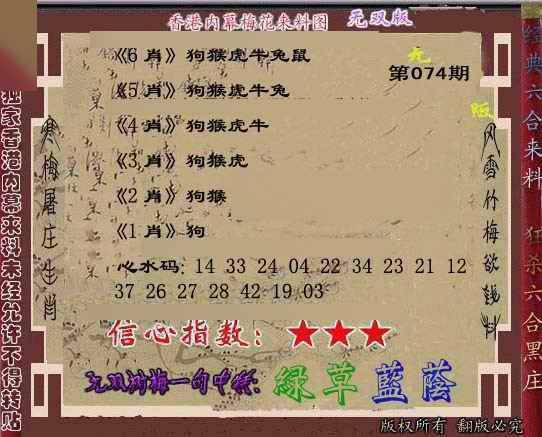 香港内幕梅花来料图 无双版
《6 肖》狗猴虎牛兔鼠
无
第074期
《5 肖》狗猴虎牛兔
版
《4 肖》狗猴虎牛
《3 肖》狗猴虎
《2 肖》狗猴
《1 肖》狗
心水码: 14 33 24 04 22 34 23 21 12
37 26 27 28 42 19 03
信心指数: ★★★
绿草蓝荫
版权所有 翻版必究
独家香港内幕来料未经允许不得转贴
寒梅屠庄生肖
风雪竹梅欲钱料
经典六合来料 狂杀六合黑庄